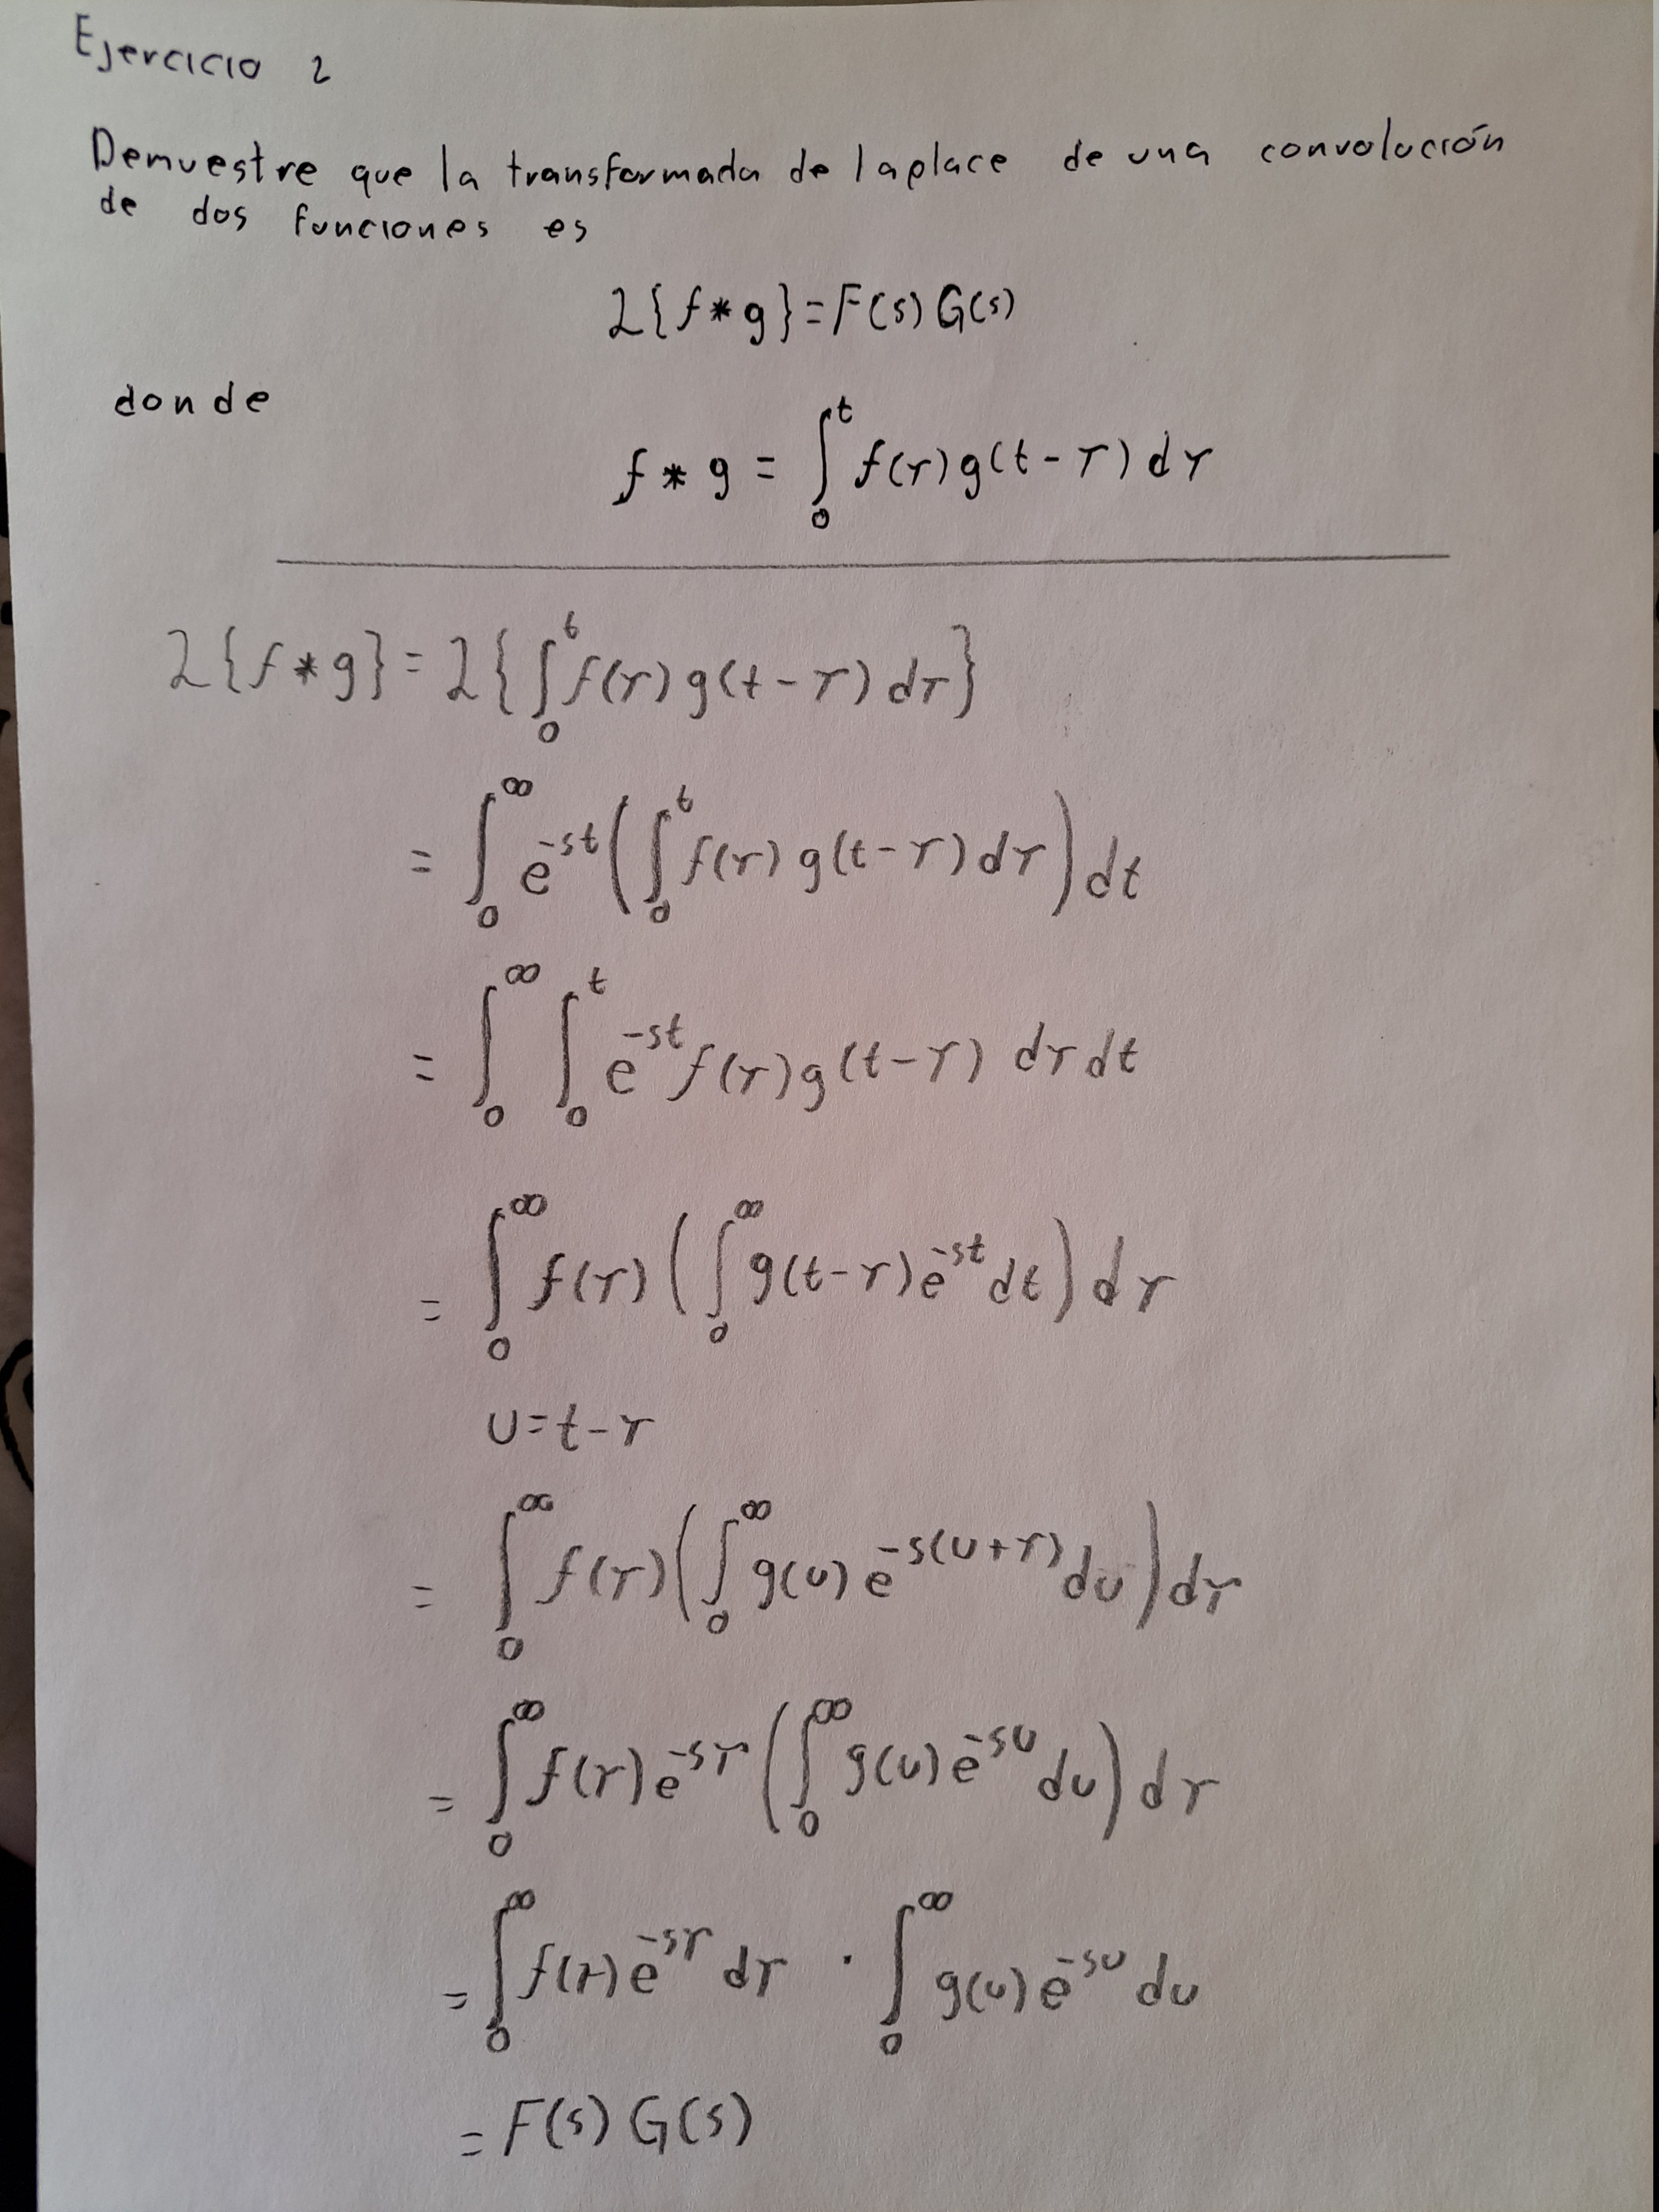 Ejercicio 2
Demuestre que la transformada de laplace de una convolución
de dos funciones es
ℒ{f*g}=F(s)G(s)
donde
f*g = ∫₀ᵗ f(τ)g(t-τ)dτ
ℒ{f*g}=ℒ{∫₀ᵗ f(τ)g(t-τ)dτ}
= ∫₀^∞ e^{-st}(∫₀ᵗ f(τ)g(t-τ)dτ)dt
= ∫₀^∞ ∫₀ᵗ e^{-st}f(τ)g(t-τ) dτdt
= ∫₀^∞ f(τ)(∫₀^∞ g(t-τ)e^{-st}dt)dτ
u=t-τ
= ∫₀^∞ f(τ)(∫₀^∞ g(u)e^{-s(u+τ)}du)dτ
= ∫₀^∞ f(τ)e^{-sτ}(∫₀^∞ g(u)e^{-su}du)dτ
= ∫₀^∞ f(τ)e^{-sτ}dτ · ∫₀^∞ g(u)e^{-su}du
= F(s)G(s)